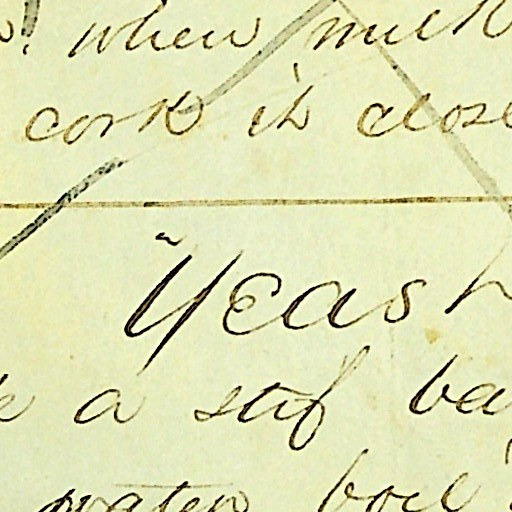 when milk
cork it close
"Yeast
a stif ba
water boil